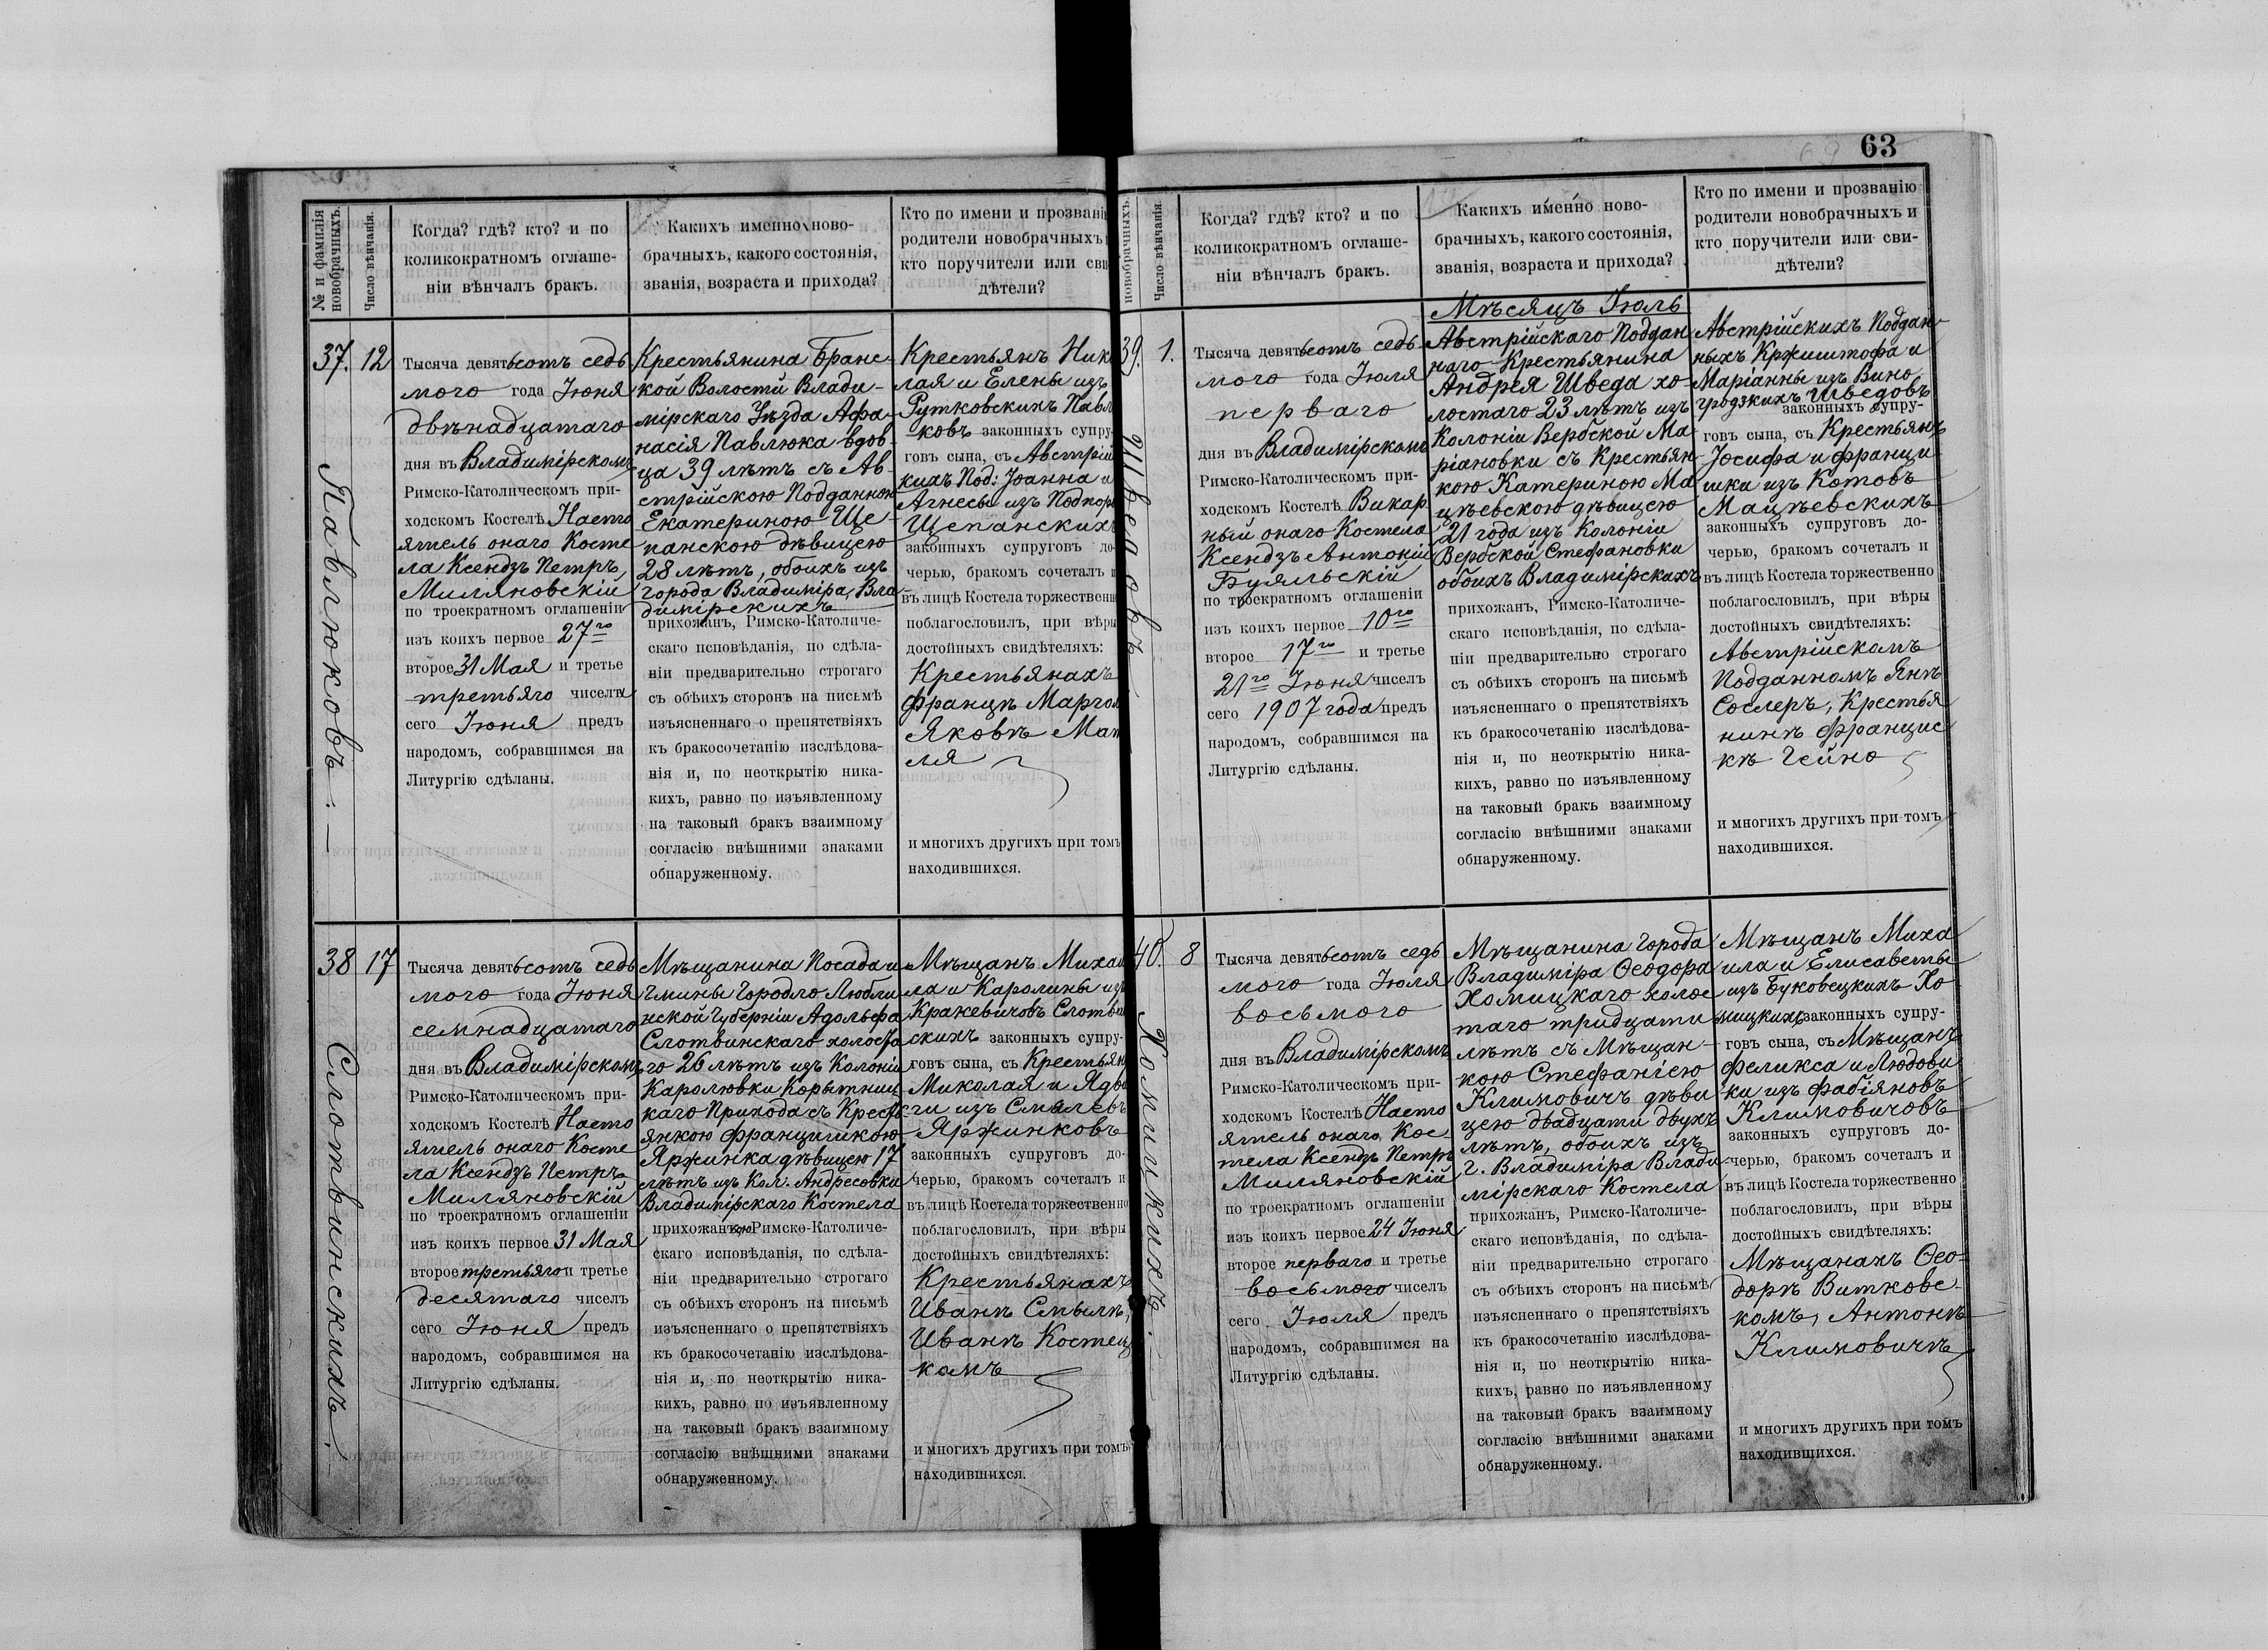 63
№ и фамилія
новобрачныхъ.
Число вѣнчанія.
Когда? гдѣ? кто? и по
коликократномъ оглаше-
ніи вѣнчалъ бракъ.
Каких именно ново-
брачныхъ, какого состоянія,
званія, возраста и прихода?
Кто по имени и прозванію
родители новобрачныхъ
кто поручители или сви
дѣтели?
37.
Павлюковъ.
12
Тысяча девятьсотъ седь
мого года Іюня
двѣнадцатаго
дня въ Владимірскомъ
Римско-Католическомъ при-
ходскомъ Костелѣ Насто
ятель онаго Косте
ла Ксендзъ Петръ
Миляновскій
по троекратномъ оглашеніи
изъ коихъ первое 27го
второе 31 Мая и третье
третьяго чиселъ
сего Іюня предъ
народомъ, собравшимся на
Литургію сдѣланы.
Крестьянина Бранс-
кой Волости Влади-
мірскаго Уѣзда Афа-
насія Павлюка вдов-
ца 39 лѣтъ съ Ав-
стрійскою Подданною
Екатериною Ще-
панскою дѣвицею
28 лѣтъ, обоихъ изъ
города Владиміра, Вла-
димірскихъ
прихожанъ, Римско-Католиче-
скаго исповѣданія, по сдѣла-
ніи предварительно строгаго
съ обѣихъ сторонъ на письмѣ
изъясненнаго о препятствіяхъ
къ бракосочетанію изслѣдова-
нія и, по неоткрытію ника-
кихъ, равно по изъявленному
на таковый бракъ взаимному
согласію внѣшними знаками
обнаруженному.
Крестьянъ Нико
лая и Елены изъ
Рутковскихъ Павл
ковъ законныхъ супру-
говъ сына, съ Австрій
кихъ Под: Іоанна и
Агнесы изъ Подкор
Щепанскихъ
законныхъ супруговъ до-
черью, бракомъ сочеталъ и
въ лицѣ Костела торжественно
поблагословилъ, при вѣры
достойныхъ свидѣтеляхъ:
Крестьянахъ
Францѣ Маргол
Яковѣ Мат
ея
и многихъ другихъ при томъ
находившихся.
38
Слотвинскихъ.
17
Тысяча девятьсотъ седь
мого года Іюня
семнадцатаго
дня въ Владимірскомъ
Римско-Католическомъ при-
ходскомъ Костелѣ Насто
ятель онаго Косте
ла Ксендзъ Петръ
Миляновскій
по троекратномъ оглашеніи
изъ коихъ первое 31 Мая
второе третьяго и третье
десятаго чиселъ
сего Іюня предъ
народомъ, собравшимся на
Литургію сдѣланы.
Мѣщанина Посада и
Гмины Городло Любли
нской Губерніи Адольфа
Слотвинскаго холоста
го 26 лѣтъ изъ Колоніи
Каролювки Корытниц
каго Прихода съ Кресть
янкою Францишкою
Яржинка дѣвицею 17
лѣтъ изъ Кол. Андресовки
Владимірскаго Костела
прихожанкою Римско-Католиче-
скаго исповѣданія, по сдѣла-
ніи предварительно строгаго
съ обѣихъ сторонъ на письмѣ
изъясненнаго о препятствіяхъ
къ бракосочетанію изслѣдова-
нія и, по неоткрытію ника-
кихъ, равно по изъявленному
на таковый бракъ взаимному
согласію внѣшними знаками
обнаруженному.
Мѣщанъ Михаи
ла и Каролины изъ
Кракевичовъ Слотвин
скихъ законныхъ супру-
говъ сына, съ Крестьян
Миколая и Ядви
ги изъ Смялевъ
Яржинковъ
законныхъ супруговъ до-
черью, бракомъ сочеталъ и
въ лицѣ Костела торжественно
поблагословилъ, при вѣры
достойныхъ свидѣтеляхъ:
Крестьянахъ
Иванѣ Смылѣ,
Иванѣ Костец
комъ
и многихъ другихъ при томъ
находившихся.
новобрачныхъ.
Число вѣнчанія.
Когда? гдѣ? кто? и по
коликократномъ оглаше-
ніи вѣнчалъ бракъ.
Какихъ именно ново-
брачныхъ, какого состоянія,
званія, возраста и прихода?
Кто по имени и прозванію
родители новобрачныхъ и
кто поручители или сви-
дѣтели?
Мѣсяцъ Іюль
39.
Шведовъ
1.
Тысяча девятьсотъ седь-
мого года Іюля
перваго
дня въ Владимірскомъ
Римско-Католическомъ при-
ходскомъ Костелѣ Викар
ный онаго Костела
Ксендзъ Антоній
Буяльскій
по троекратномъ оглашеніи
изъ коихъ первое 10го
второе 17го и третье
21го Іюня чиселъ
сего 1907 года предъ
народомъ, собравшимся на
Литургію сдѣланы.
Австрійскаго Поддан
наго Крестьянина
Андрея Шведа хо-
лостаго 23 лѣтъ изъ
Колоніи Вербской Ма
ріановки съ Крестьян-
кою Катериною Ма
цѣевскою дѣвицею
21 года изъ Колоніи
Вербской Стефановки
обоихъ Владимірскихъ
прихожанъ, Римско-Католиче-
скаго исповѣданія, по сдѣла-
ніи предварительно строгаго
съ обѣихъ сторонъ на письмѣ
изъясненнаго о препятствіяхъ
къ бракосочетанію изслѣдова-
нія и, по неоткрытію ника-
кихъ, равно по изъявленному
на таковый бракъ взаимному
согласію внѣшними знаками
обнаруженному.
Австрійскихъ Поддан-
ныхъ Кржиштофа и
Маріанны изъ Вино
градзкихъ Шведовъ
законныхъ супру-
говъ сына, съ Крестьянъ
Іосифа и Францы
шки изъ Котовъ
Мацѣевскихъ
законныхъ супруговъ до-
черью, бракомъ сочеталъ и
въ лицѣ Костела торжественно
поблагословилъ, при вѣры
достойныхъ свидѣтеляхъ:
Австрійскомъ
Подданномъ Янѣ
Сослеръ, Крестья
нинѣ Францис
кѣ Гейно
и многихъ другихъ при томъ
находившихся.
40.
Хомицкихъ.
8
Тысяча девятьсотъ седь
мого года Іюля
восьмого
дня въ Владимірскомъ
Римско-Католическомъ при-
ходскомъ Костелѣ Насто
ятель онаго Кос-
тела Ксендзъ Петръ
Миляновскій
по троекратномъ оглашеніи
изъ коихъ первое 24 Іюня
второе перваго и третье
восьмого чиселъ
сего Іюля предъ
народомъ, собравшимся на
Литургію сдѣланы.
Мѣщанина города
Владиміра Ѳеодора
Хомицкаго холос
таго тридцати
лѣтъ съ Мѣщан-
кою Стефаніею
Климовичъ дѣви
цею двадцати двухъ
лѣтъ, обоихъ изъ
г. Владиміра Влади-
мірскаго Костела
прихожанъ, Римско-Католиче-
скаго исповѣданія, по сдѣла-
ніи предварительно строгаго
съ обѣихъ сторонъ на письмѣ
изъясненнаго о препятствіяхъ
къ бракосочетанію изслѣдова-
нія и, по неоткрытію ника-
кихъ, равно по изъявленному
на таковый бракъ взаимному
согласію внѣшними знаками
обнаруженному.
Мѣщанъ Миха
ила и Елисаветы
изъ Буковецкихъ Хо
мицкихъ законныхъ супру-
говъ сына, съ Мѣщанъ
Феликса и Людови
ки изъ Фабіяновъ
Климовичовъ
законныхъ супруговъ до-
черью, бракомъ сочеталъ и
въ лицѣ Костела торжественно
поблагословилъ, при вѣры
достойныхъ свидѣтеляхъ:
Мѣщанахъ Ѳео-
дорѣ Витковс-
комъ, Антонѣ
Климовичѣ
и многихъ другихъ при томъ
находившихся.